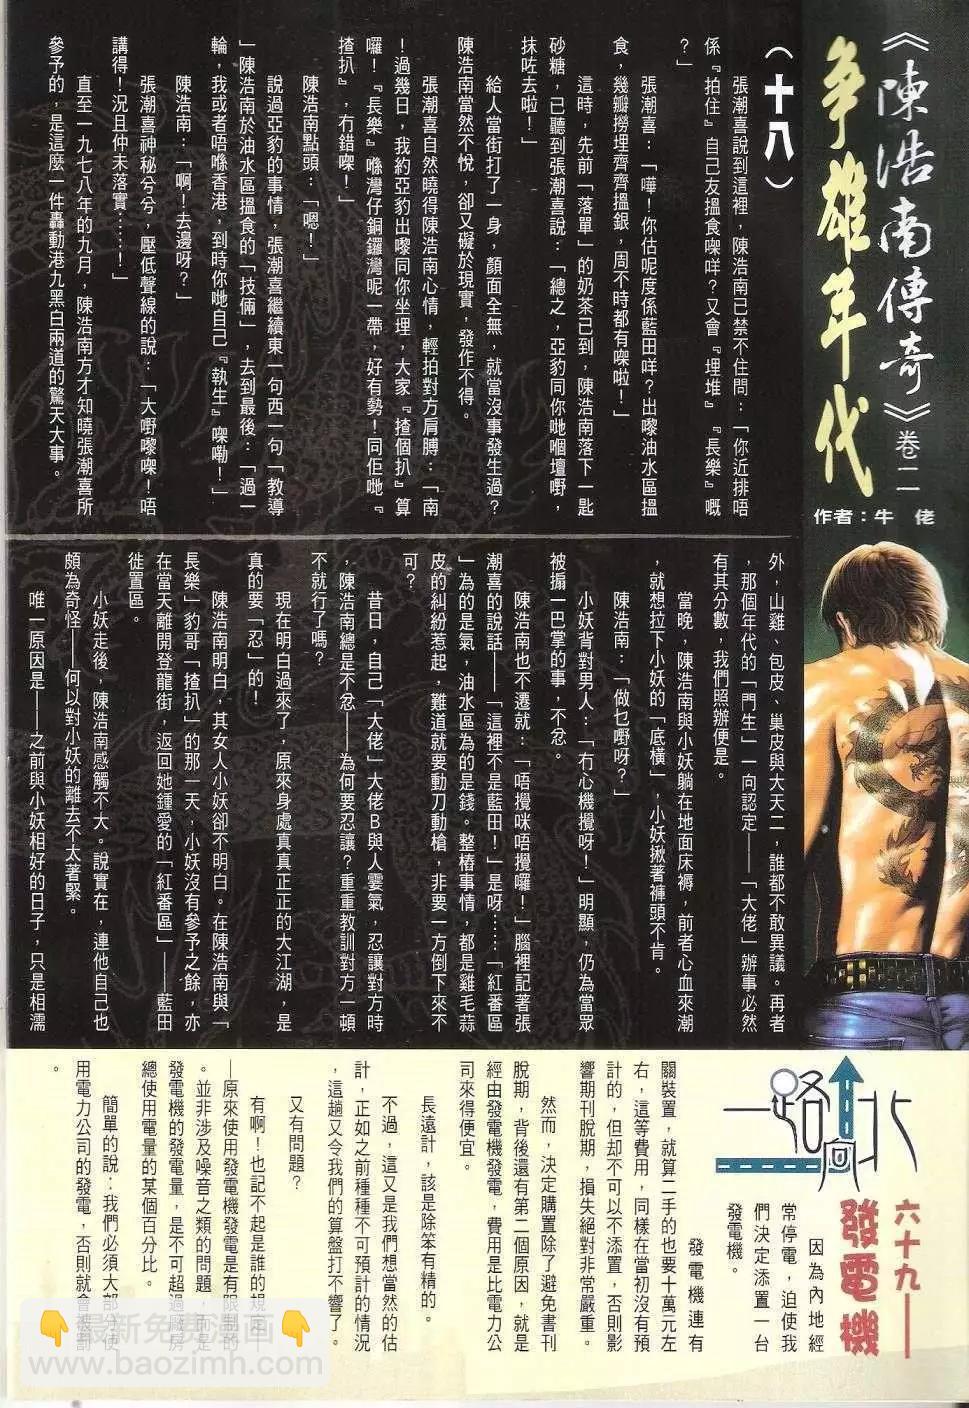 《陳浩南傳奇》卷二
爭雄年代
作者：牛　佬
（十八）
張潮喜說到這裡，陳浩南已禁不住問：「你近排唔
係『拍住』自己友搵食㗎咩？又會『埋堆』『長樂』嘅
？」
張潮喜：「嘩！你估呢度係藍田咩？出嚟油水區搵
食，幾瓣撈埋齊齊搵銀，周不時都有㗎啦！」
這時，先前「落單」的奶茶已到，陳浩南落下一匙
砂糖，已聽到張潮喜說：「總之，亞豹同你哋嗰壇嘢，
抹咗去啦！」
給人當街打了一身，顏面全無，就當沒事發生過？
陳浩南當然不悅，卻又礙於現實，發作不得。
張潮喜自然曉得陳浩南心情，輕拍對方肩膊：「南
！過幾日，我約亞豹出嚟同你坐埋，大家『揸個扒』算
囉！『長樂』喺灣仔銅鑼灣呢一帶，好有勢！同佢哋『
揸扒』，冇錯㗎！」
陳浩南點頭：「嗯！」
說過亞豹的事情，張潮喜繼續東一句西一句「教導
」陳浩南於油水區搵食的「技倆」，去到最後：「過一
輪，我或者唔喺香港，到時你哋自己『執生』㗎嘞！」
陳浩南：「啊！去邊呀？」
張潮喜神秘兮兮，壓低聲線的說：「大嘢嚟㗎！唔
講得！況且仲未落實……！」
直至一九七八年的九月，陳浩南方才知曉張潮喜所
參予的，是這麼一件轟動港九黑白兩道的驚天大事。
外，山雞、包皮、巢皮與大天二，誰都不敢異議。再者
，那個年代的「門生」一向認定——「大佬」辦事必然
有其分數，我們照辦便是。
當晚，陳浩南與小妖躺在地面床褥，前者心血來潮
，就想拉下小妖的「底橫」，小妖揪著褲頭不肯。
陳浩南：「做乜嘢呀？」
小妖背對男人：「冇心機攪呀！」明顯，仍為當眾
被搧一巴掌的事，不忿。
陳浩南也不遷就：「唔攪咪唔攪囉！」腦裡記著張
潮喜的說話——「這裡不是藍田！」是呀……「紅番區
」為的是氣，油水區為的是錢。整樁事情，都是雞毛蒜
皮的糾紛惹起，難道就要動刀動槍，非要一方倒下來不
可？
昔日，自己「大佬」大佬Ｂ與人霎氣，忍讓對方時
，陳浩南總是不忿——為何要忍讓？重重教訓對方一頓
不就行了嗎？
現在明白過來了，原來身處真真正正的大江湖，是
真的要「忍」的！
陳浩南明白，其女人小妖卻不明白。在陳浩南與「
長樂」豹哥「揸扒」的那一天，小妖沒有參予之餘，亦
在當天離開登龍街，返回她鍾愛的「紅番區」——藍田
徙置區。
小妖走後，陳浩南感觸不大。說實在，連他自己也
頗為奇怪——何以對小妖的離去不太著緊。
唯一原因是——之前與小妖相好的日子，只是相濡
一路向北
六十九——
發電機
因為內地經
常停電，迫使我
們決定添置一台
發電機。
發電機連有
關裝置，就算二手的也要十萬元左
右，這等費用，同樣在當初沒有預
計的，但却不可以不添置，否則影
響期刊脫期，損失絕對非常嚴重。
然而，決定購置除了避免書刊
脫期，背後還有第二個原因，就是
經由發電機發電，費用是比電力公
司來得便宜。
長遠計，該是除笨有精的。
不過，這又是我們想當然的估
計，正如之前種種不可預計的情況
，這趟又令我們的算盤打不響了。
又有問題？
有啊！也記不起是誰的規定—
—原來使用發電機發電是有限制的
。並非涉及噪音之類的問題，而是
發電機的發電量，是不可超過廠房
總使用電量的某個百分比。
簡單的說：我們必須大部分使
用電力公司的發電，否則就會被罰
。
最新免费漫画
www.baozimh.com